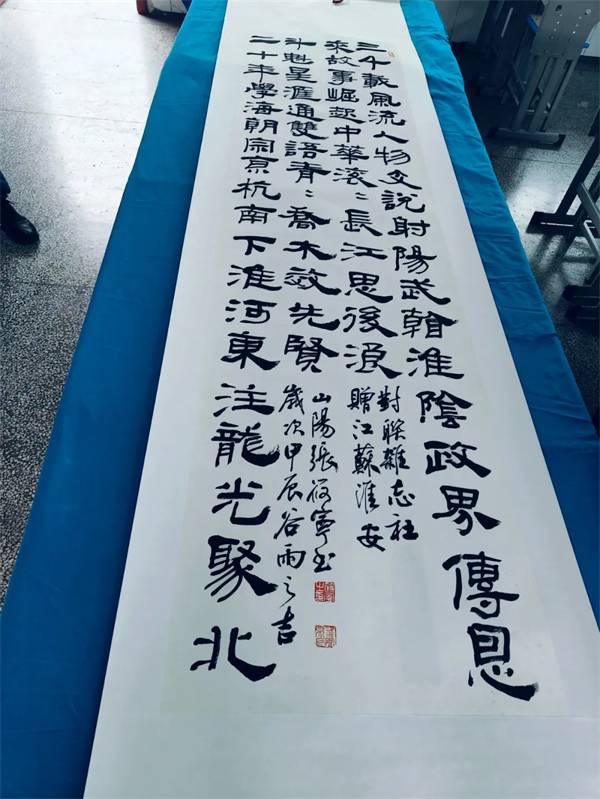 三千載風流人物文說射陽武韜淮陰政界傳恩
來故事崛起中華滾〻長江思後浪
對聯雜志社
贈江蘇淮安
二十年學海朝宗京杭南下淮河東注龍光聚北
斗魁星涯通雙語青〻喬木效先賢
山陽張筱寧書
歲次甲辰谷雨之吉